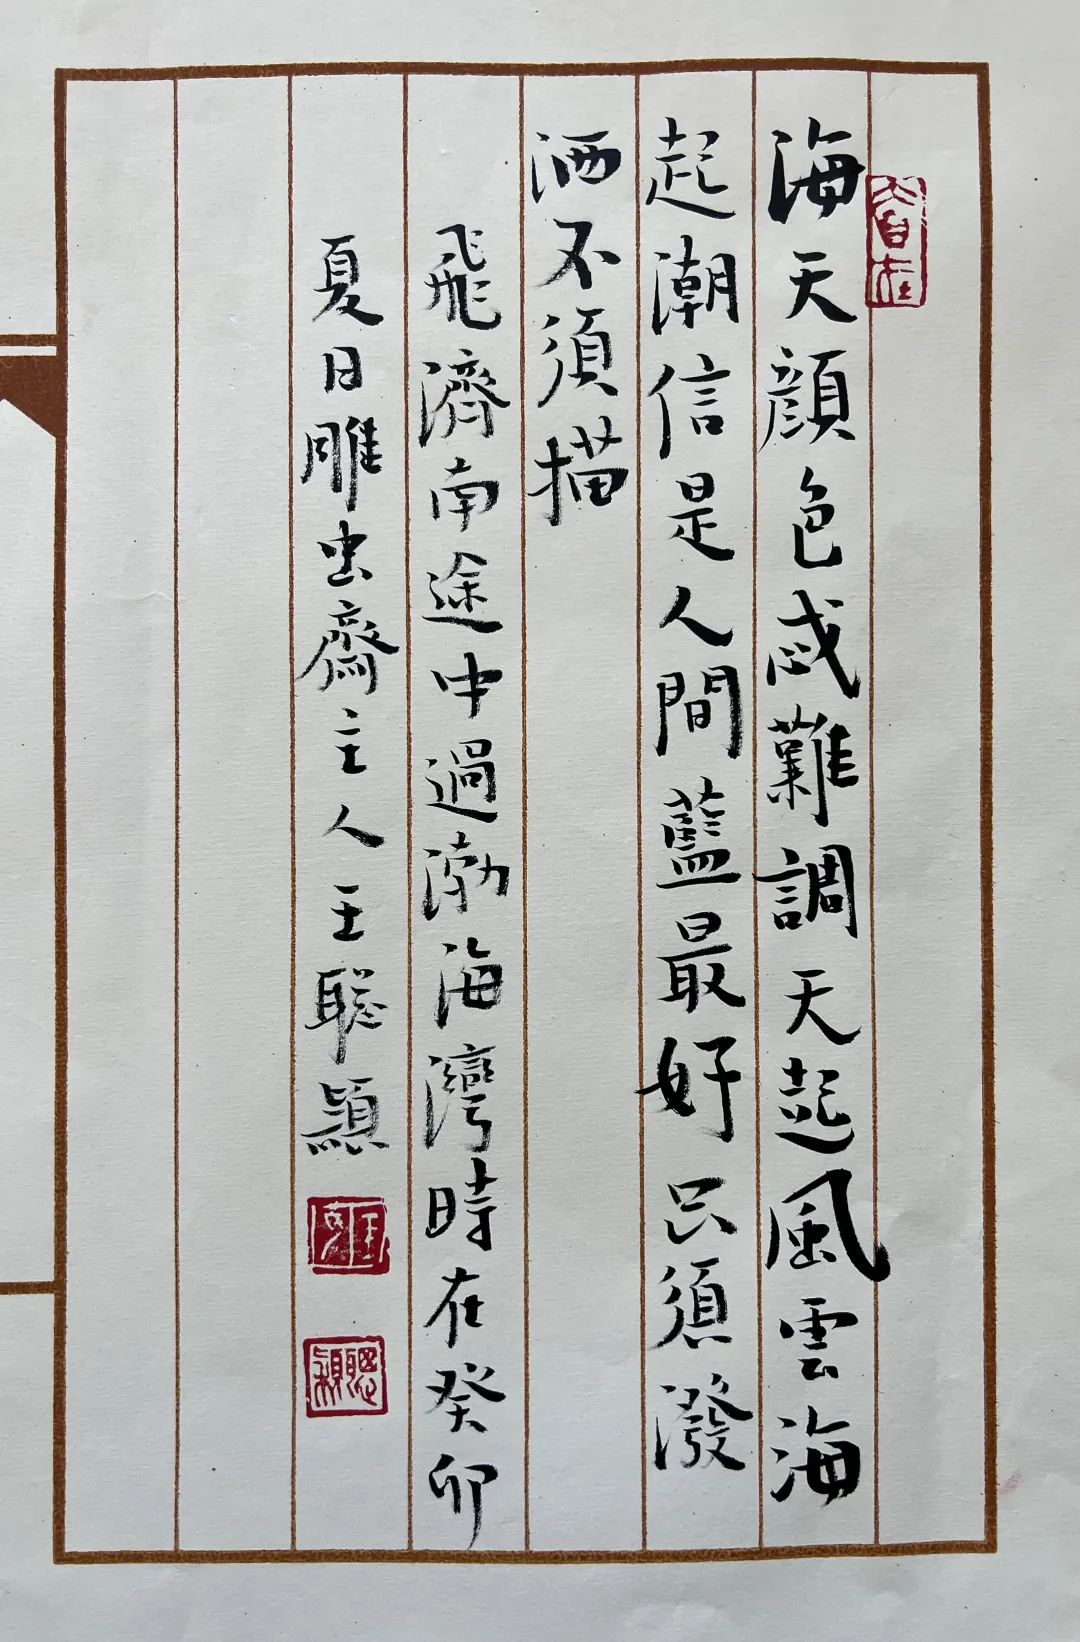 海天顔色忒難調天起風雲海
起潮信是人間藍最好只須潑
洒不須描
飛濟南途中過渤海灣時在癸卯
夏日雕虫齋主人王聰穎
聰穎